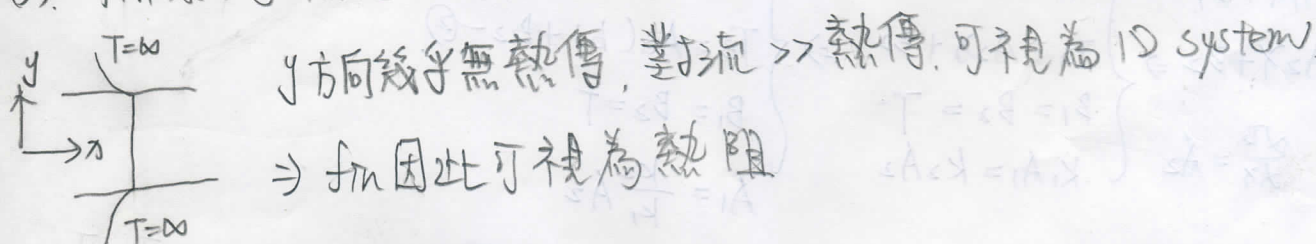 T=∞
y
y方向幾乎無熱傳, 對流 >> 熱傳, 可視為 1D system
x
⇒ fin因此可視為熱阻
T=∞